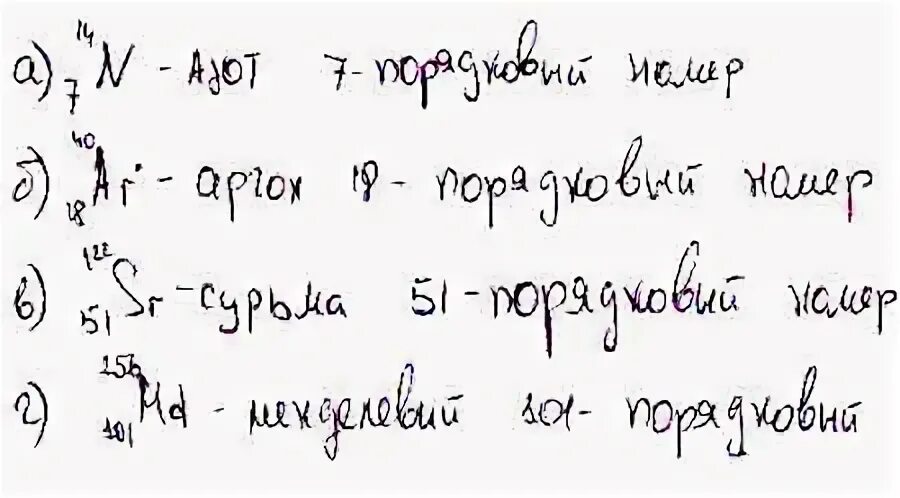 а) ¹⁴₇N - Азот 7 - порядковый номер
б) ⁴⁰₁₈Ar - аргон 18 - порядковый номер
в) ¹²²₅₁Sr - сурьма 51 - порядковый номер
г) ²⁵⁶₁₀₁Md - менделевий 101 - порядковый